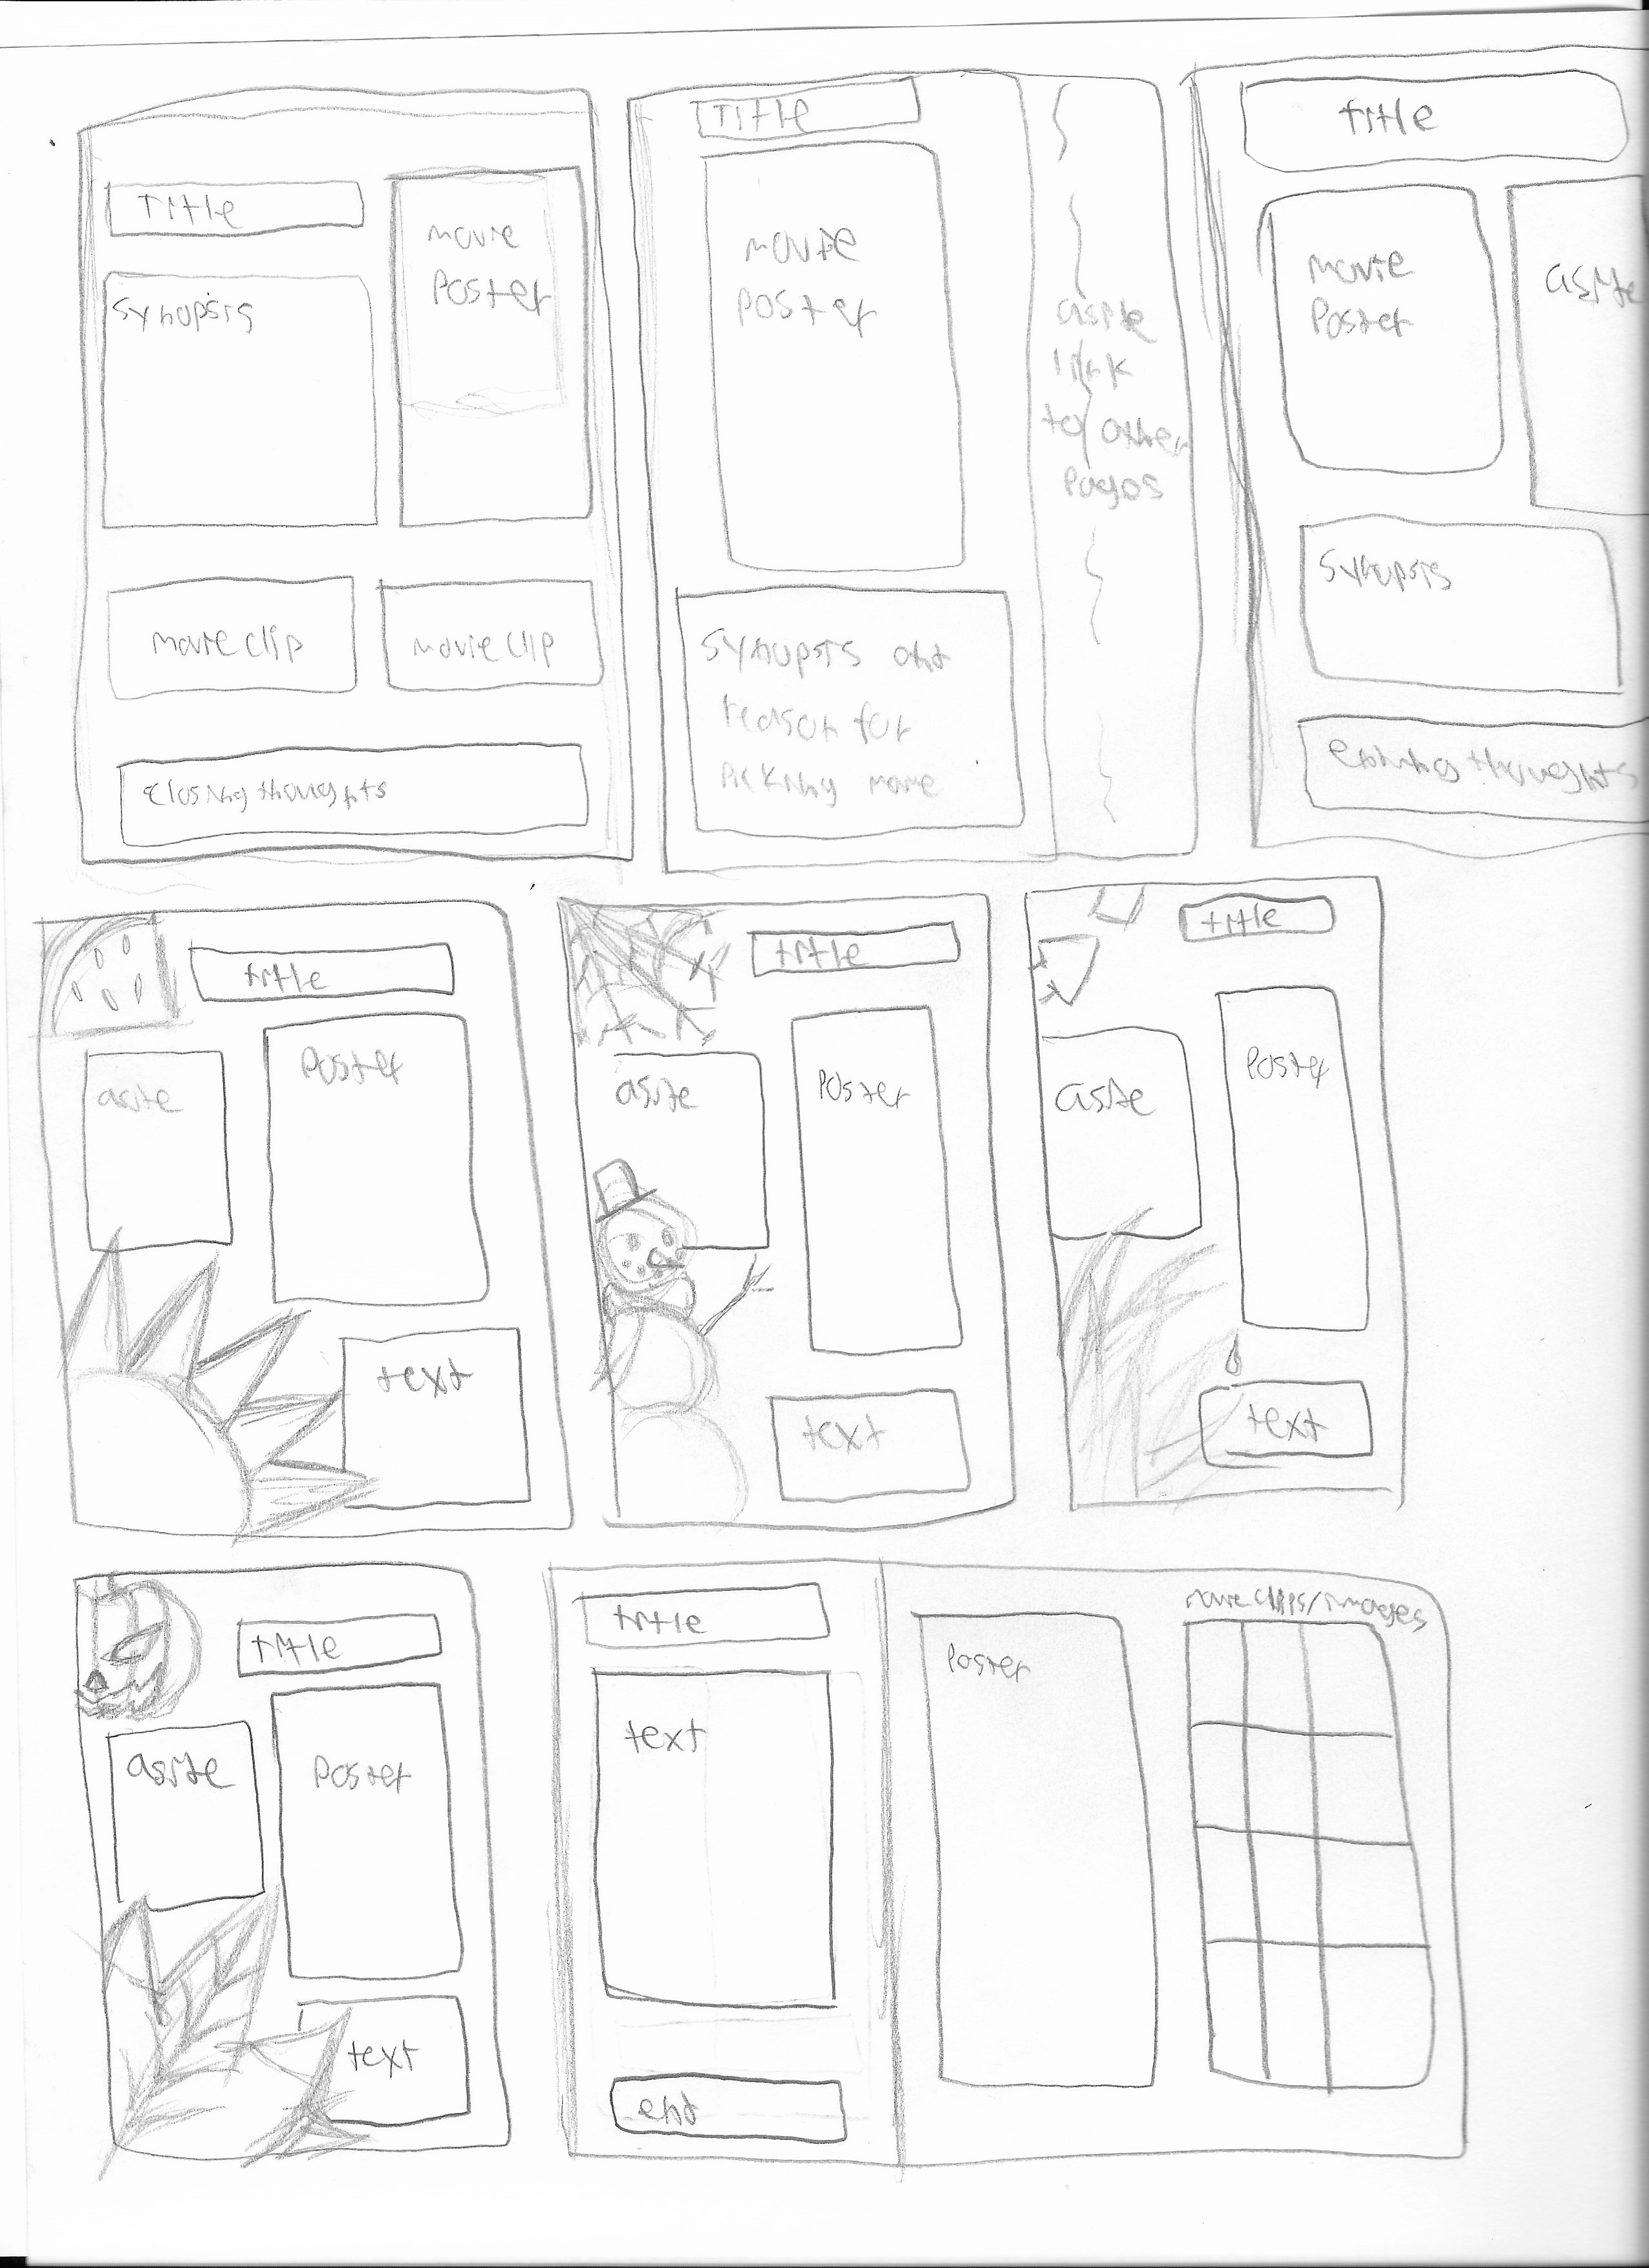 Title
movie
Poster
Synopsis
movie clip
movie clip
Closing thoughts
Title
movie
poster
Synopsis and
reason for
picking movie
aside
link
to other
pages
title
movie
Poster
aside
Synopsis
ending thoughts
title
Poster
aside
text
title
aside
Poster
text
title
aside
Poster
text
title
aside
Poster
text
title
text
end
Poster
movie clips/images